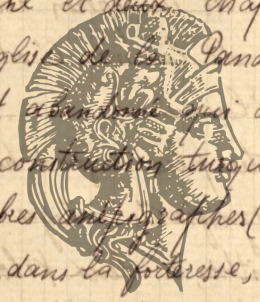 et deux chap
glise de la Pana
t abandonné qui
construction turque
bres anépigraphes (
dans la forteresse,